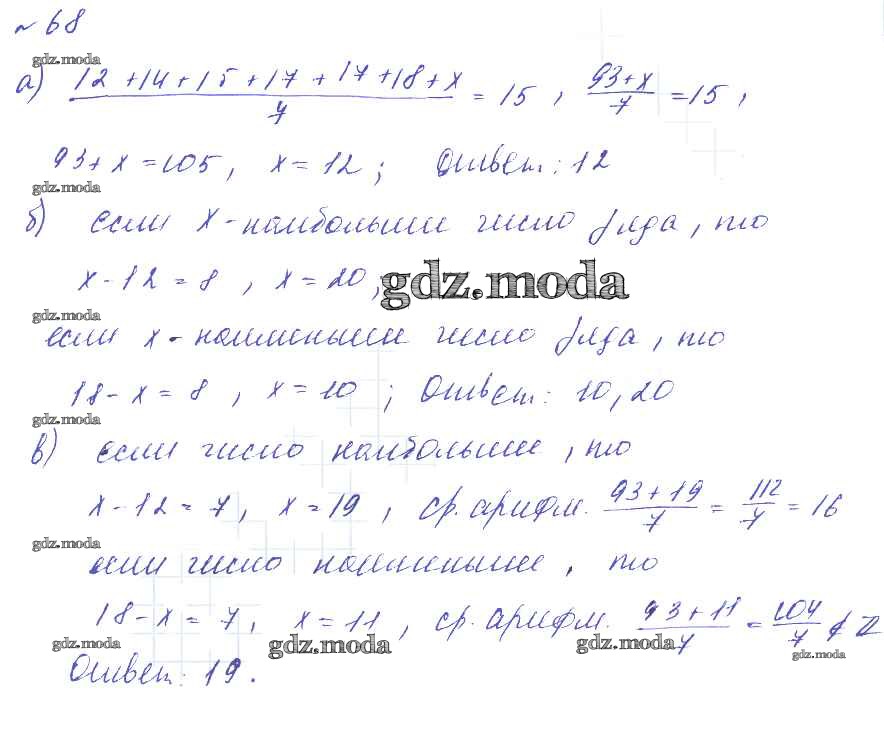 № 68
gdz.moda
а) (12 + 14 + 15 + 17 + 17 + 18 + x)/7 = 15 , (93 + x)/7 = 15 ,
93 + x = 105 , x = 12 ; Ответ: 12
gdz.moda
б) если x - наибольшее число ряда , то
x - 12 = 8 , x = 20 ,
gdz.moda
gdz.moda
если x - наименьшее число ряда , то
18 - x = 8 , x = 10 ; Ответ: 10, 20
gdz.moda
в) если число наибольшее , то
x - 12 = 7 , x = 19 , ср. арифм. (93 + 19)/7 = 112/7 = 16
gdz.moda
если число наименьшее , то
18 - x = 7 , x = 11 , ср. арифм. (93 + 11)/7 = 104/7 ∉ Z
gdz.moda gdz.moda gdz.moda gdz.moda
Ответ: 19 .